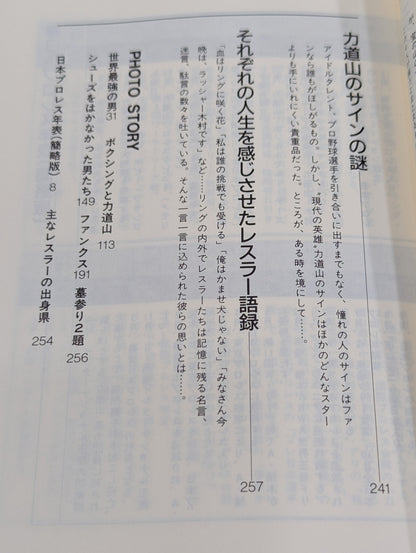 力道山のサインの謎
アイドルタレント、プロ野球選手を引き合いに出すまでもなく、憧れの人のサインはファ
ンなら誰もがほしがるもの。しかし、“現代の英雄”力道山のサインはほかのどんなスター
よりも手にいれにくい貴重品だった。ところが、ある時を境にして……。
241
それぞれの人生を感じさせたレスラー語録
「血はリングに咲く花」「私は誰の挑戦でも受ける」「俺はかませ犬じゃない」「みなさん今
晩は、ラッシャー木村です」など……リングの内外でレスラーたちは記憶に残る名言、
迷言、駄言の数々を吐いている。そんな一言一言に込められた彼らの思いとは……。
257
PHOTO STORY
世界最強の男31 ボクシングと力道山113
シューズをはかなかった男たち149 ファンクス191 墓参り2題256
日本プロレス年表(簡略版)8 主なレスラーの出身県254